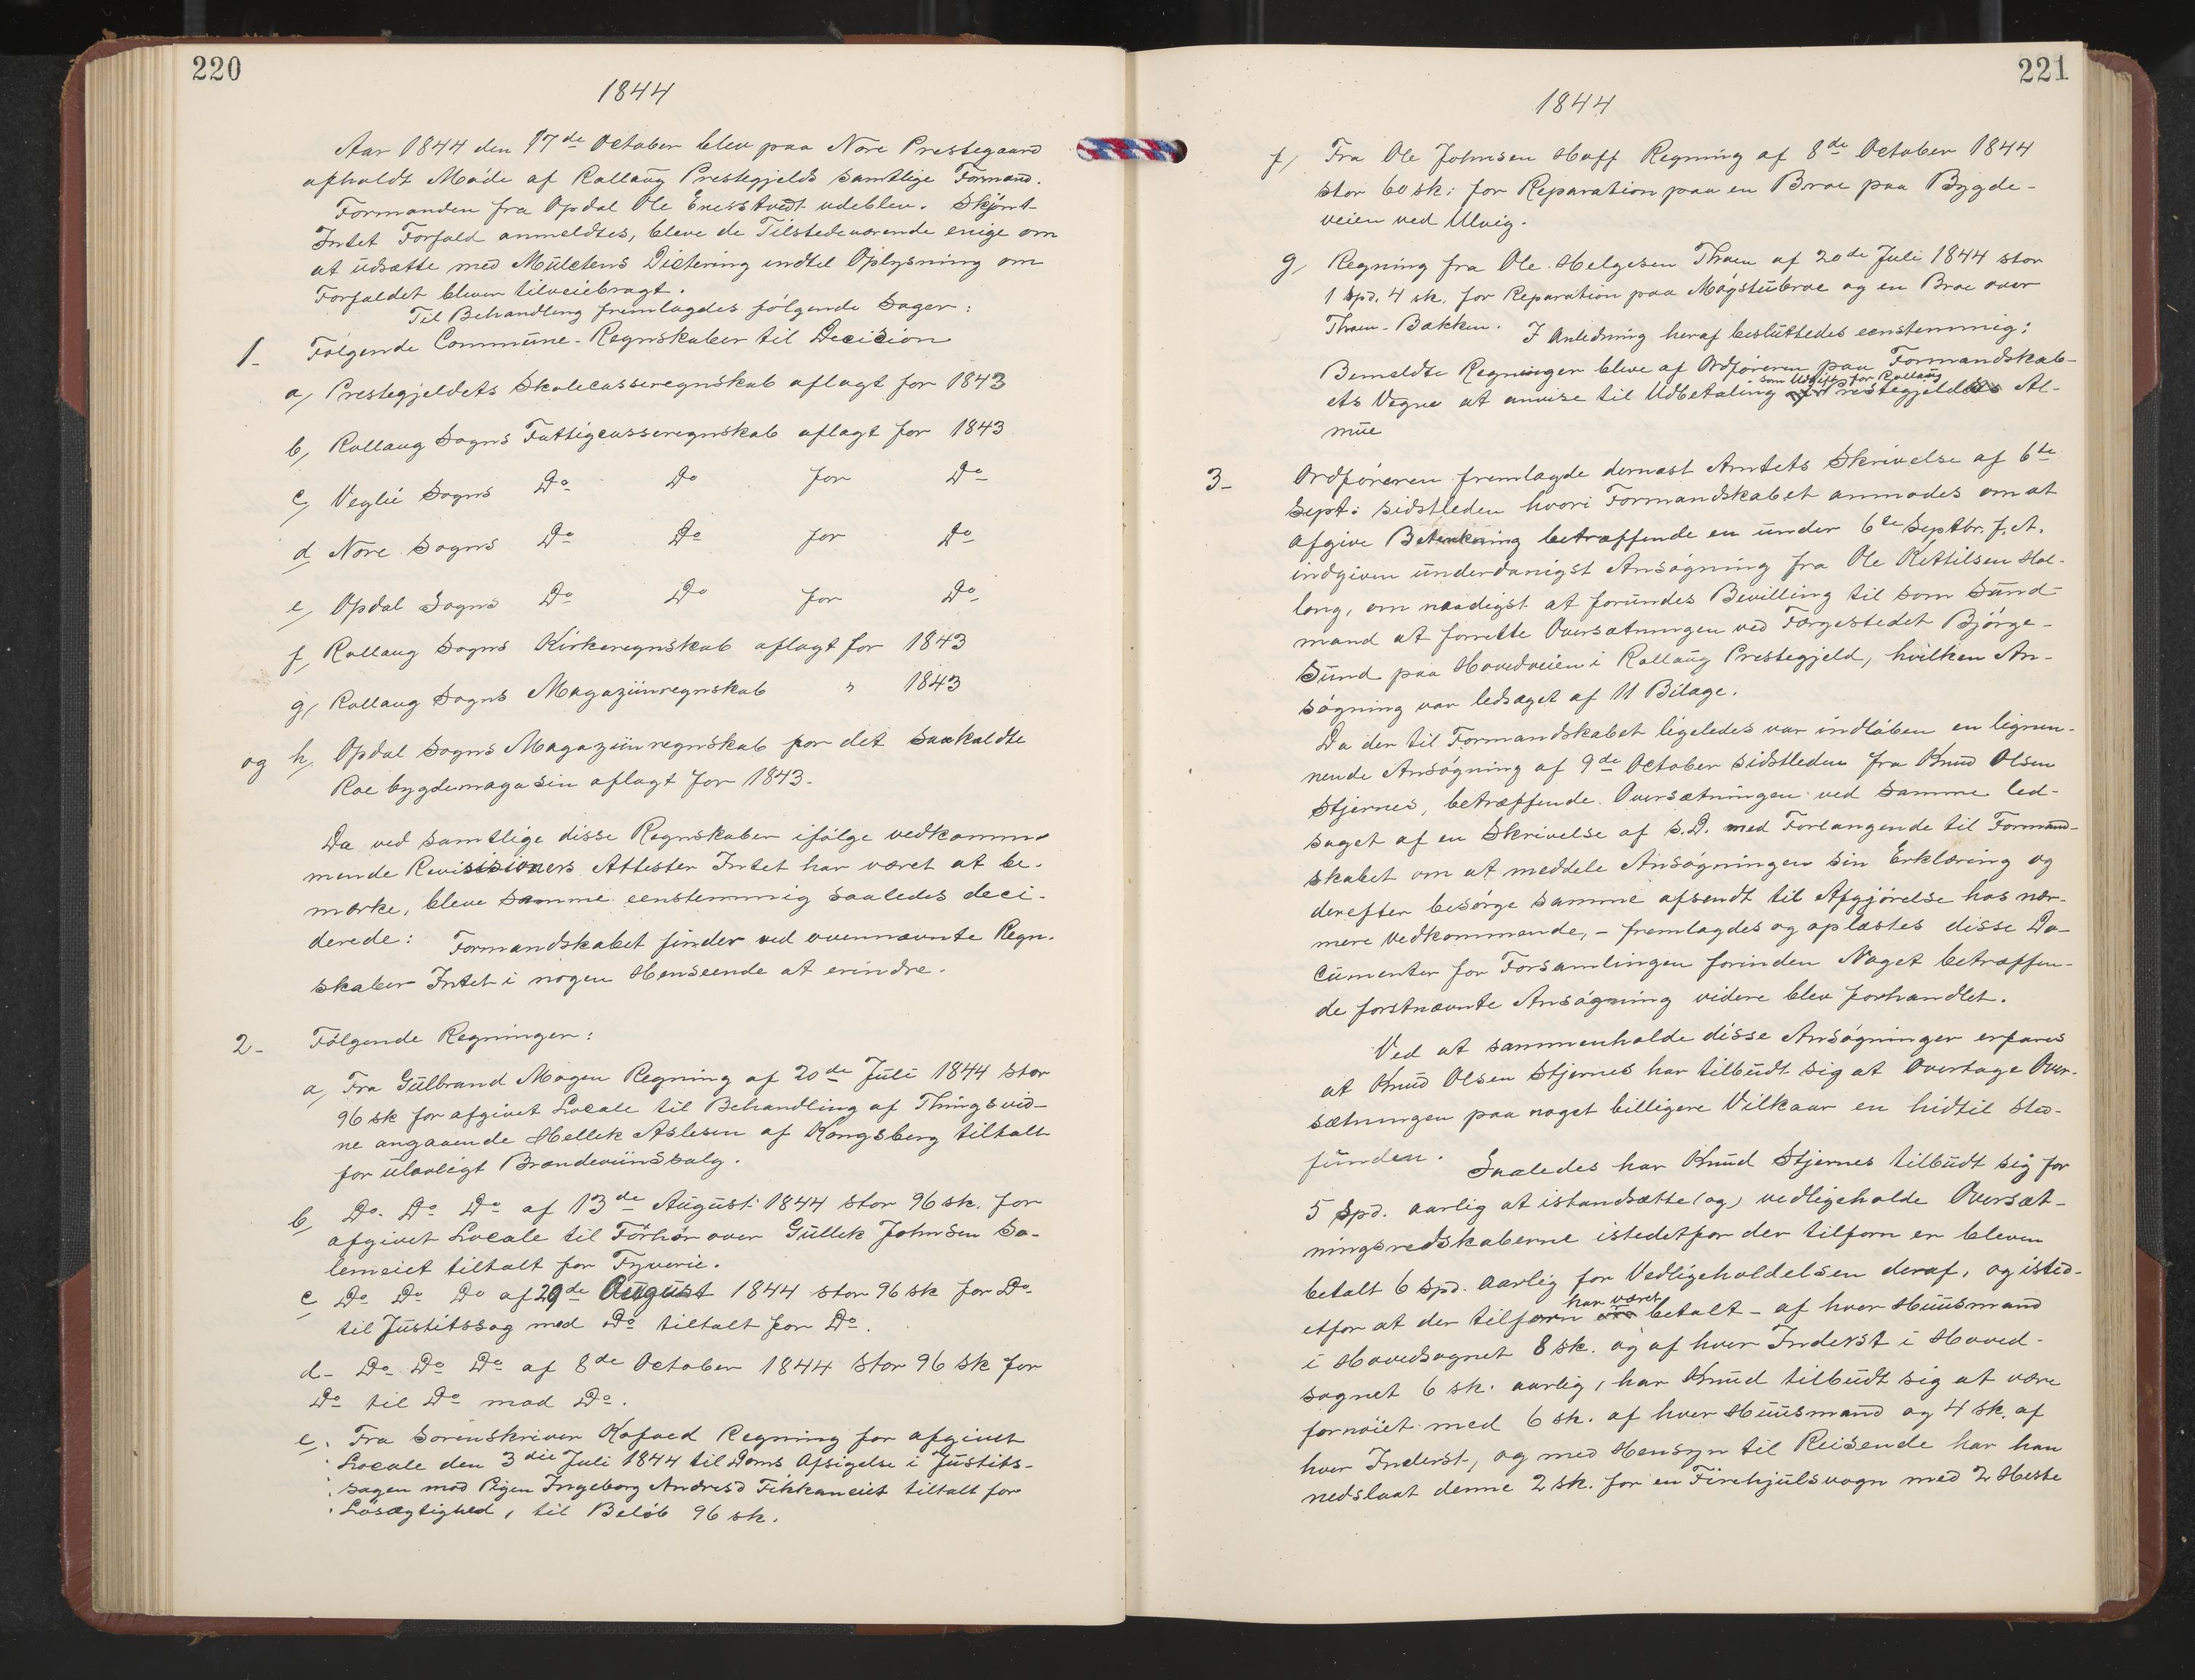 220
1844
Aar 1844 den 17de October blev paa Nore Prestegaard
afholdt Møde af Rollaug Prestegjelds samtlige Formænd.
Formanden fra Opdal Ole Enesstvedt udeblev. Skjønt
Intet Forfald anmeldtes, bleve de Tilstedeværende enige om
at udsætte med Mulctens Dictering indtil Oplysning om
Forfaldet bliver tilveiebragt.
Til Behandling fremlagdes følgende Sager:
1- Følgende Commune-Regnskaber til Decision
a, Prestegjeldets Skolecasseregnskab aflagt for 1843
b, Rollaug Sogns Fattigcasseregnskab aflagt for 1843
c, Veglie Sogns Do Do for Do
d Nore Sogns Do Do for Do
e, Opdal Sogns Do Do for Do
f, Rollaug Sogns Kirkeregnskab aflagt for 1843
g, Rollaug Sogns Magaziinregnskab " 1843
og h, Opdal Sogns Magaziinregnskab for det saakaldte
Roe bygdemagasin aflagt for 1843.
Da ved samtlige disse Regnskaber ifølge vedkomm-
mende Revisisioners Attester Intet har været at be-
mærke, bleve samme eenstemmig saaledes deci-
derede: Formandskabet finder ved ovennævnte Regn-
skaber Intet i nogen Henseende at erindre.
2- Følgende Regninger:
a, Fra Gulbrand Mogen Regning af 20de Juli 1844 stor
96 sk for afgivet Locale til Behandling af Thingsvid-
ne angaaende Hellek Aslesen af Kongsberg tiltalt
for ulovligt Brændeviinssalg.
b, Do. Do Do af 13de August 1844 stor 96 sk. for
afgivet Locale til Forhør over Gullek Johnsen So-
lemeiet tiltalt for Tyverie.
c Do Do Do af 29de August 1844 stor 96 sk for Do
til Justitssag mod Do tiltalt for Do.
d- Do Do Do af 8de October 1844 stor 96 sk for
Do til Do mod Do.
e, Fra Sorenskriver Kofoed Regning for afgivet
Locale den 3die Juli 1844 til Doms Afsigelse i Justits-
sagen mod Pigen Ingeborg Andresd Fikkaneiet tiltalt for
Løsagtighed, til Beløb 96 sk.
221
1844
f, Fra Ole Johnsen Hoff Regning af 8de October 1844
stor 60 sk: for Reparation paa en Broe paa Bygde-
veien ved Ulvig.
g, Regning fra Ole Helgesen Thoen af 20de Juli 1844 stor
1 Spd. 4 sk. for Reparation paa Mogstubroe og en Broe over
Thoen-Bækken. I Anledning heraf besluttedes eenstemmig:
Bemeldte Regninger bleve af Ordføreren paa Formandskab-
ets Vegne at anvise til Udbetaling som Udgift for Rollaug Prestegjelds Al-
mue
3- Ordføreren fremlagde dernæst Amtets Skrivelse af 6te
Sept: sidstleden hvori Formandskabet anmodes om at
afgive Betænkning betræffende en under 6te Septbr. f. A.
indgiven underdanigst Ansøgning fra Ole Kittilsen Hol-
lang, om naadigst at forundes Bevilling til som Sund-
mand at forrette Oversætningen ved Færgestedet Bjørge-
sund paa Hovedveien i Rollaug Prestegjeld, hvilken An-
søgning var ledsaget af 11 Bilage.
Da der til Formandskabet ligeledes var indløben en lignen-
nende Ansøgning af 9de October sidstleden fra Knud Olsen
Stjernes, betræffende Oversætningen ved samme led-
saget af en Skrivelse af s.D. med Forlangende til Formand-
skabet om at meddele Ansøgningen sin Erklæring og
derefter besørge samme afsendt til Afgjørelse hos nær-
mere Vedkommende, - fremlagdes og oplæstes disse Do-
cumenter for Forsamlingen forinden Noget betræffen-
de førstnævnte Ansøgning videre blev forhandlet.
Ved at sammenholde disse Ansøgninger erfares
at Knud Olsen Stjernes har tilbudt sig at overtage Over-
sætningen paa noget billigere Vilkaar en hidtil sted-
funden. Saaledes har Knud Stjernes tilbudt sig for
5 Spd. aarlig at istandsætte (og) vedligeholde Oversæt-
ningsredskaberne istedetfor der tilforn er bleven
betalt 6 Spd. aarlig for Vedligeholdelsen deraf, og isted-
etfor at der tilforn har været betalt - af hver Huusmand
i Hovedsognet 8 sk. og af hver Inderst i Hoved-
sognet 6 sk. aarlig, har Knud tilbudt sig at være
fornøiet med 6 sk. af hver Huusmand og 4 sk. af
hver Inderst, og med Hensyn til Reisende har han
nedslaat denne 2 sk. for en Firehjulsvogn med 2 Heste